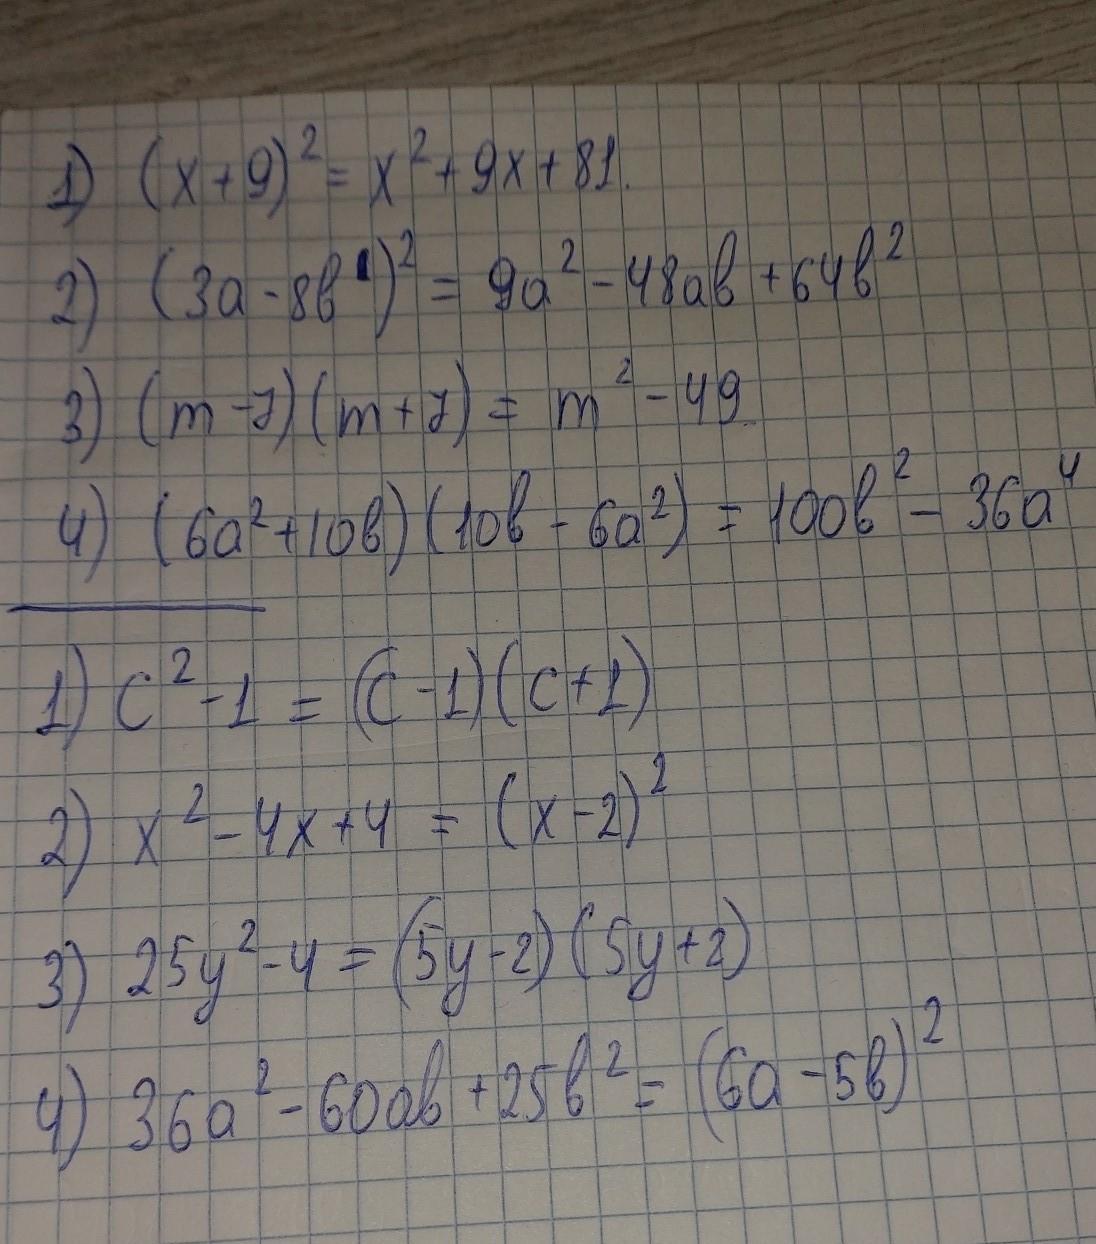 1) (x+9)² = x² + 9x + 81.
2) (3a - 8b)² = 9a² - 48ab + 64b²
3) (m - 7)(m + 7) = m² - 49
4) (6a² + 10b)(10b - 6a²) = 100b² - 36a⁴
1) c² - 1 = (c - 1)(c + 1)
2) x² - 4x + 4 = (x - 2)²
3) 25y² - 4 = (5y - 2)(5y + 2)
4) 36a² - 60ab + 25b² = (6a - 5b)²